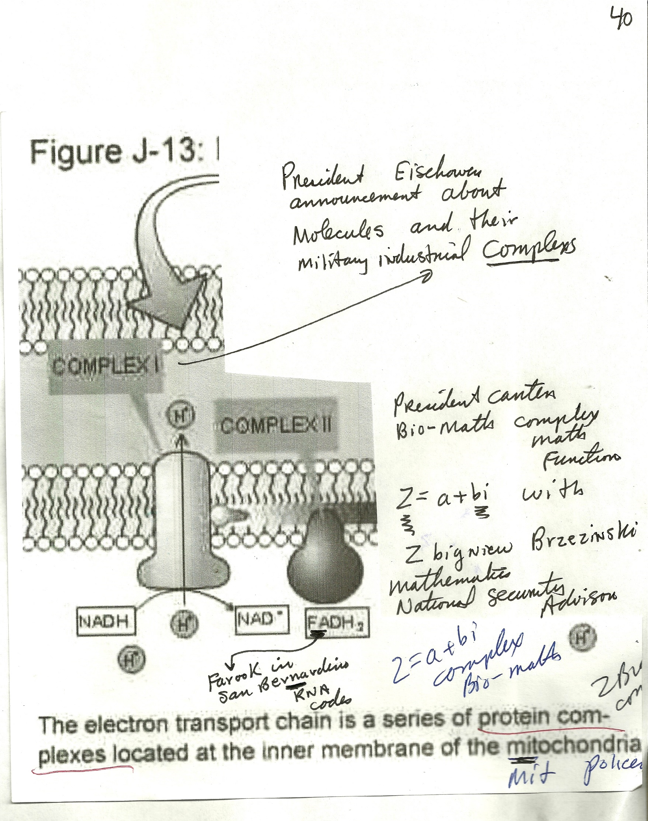 40
Figure J-13:
President Eischower
announcement about
Molecules and their
military industrial Complexs
COMPLEX I
H⁺
COMPLEX II
President canter
Bio-Maths complex
maths
Function
Z = a+bi with
Zbigniew Brzezinski
mathematics
National security
Advison
NADH
H⁺
NAD⁺
FADH₂
H⁺
H⁺
Farook in
San Bernardino
RNA
codes
Z=a+bi
complex
Bio-maths
The electron transport chain is a series of protein com-
plexes located at the inner membrane of the mitochondria
mit police